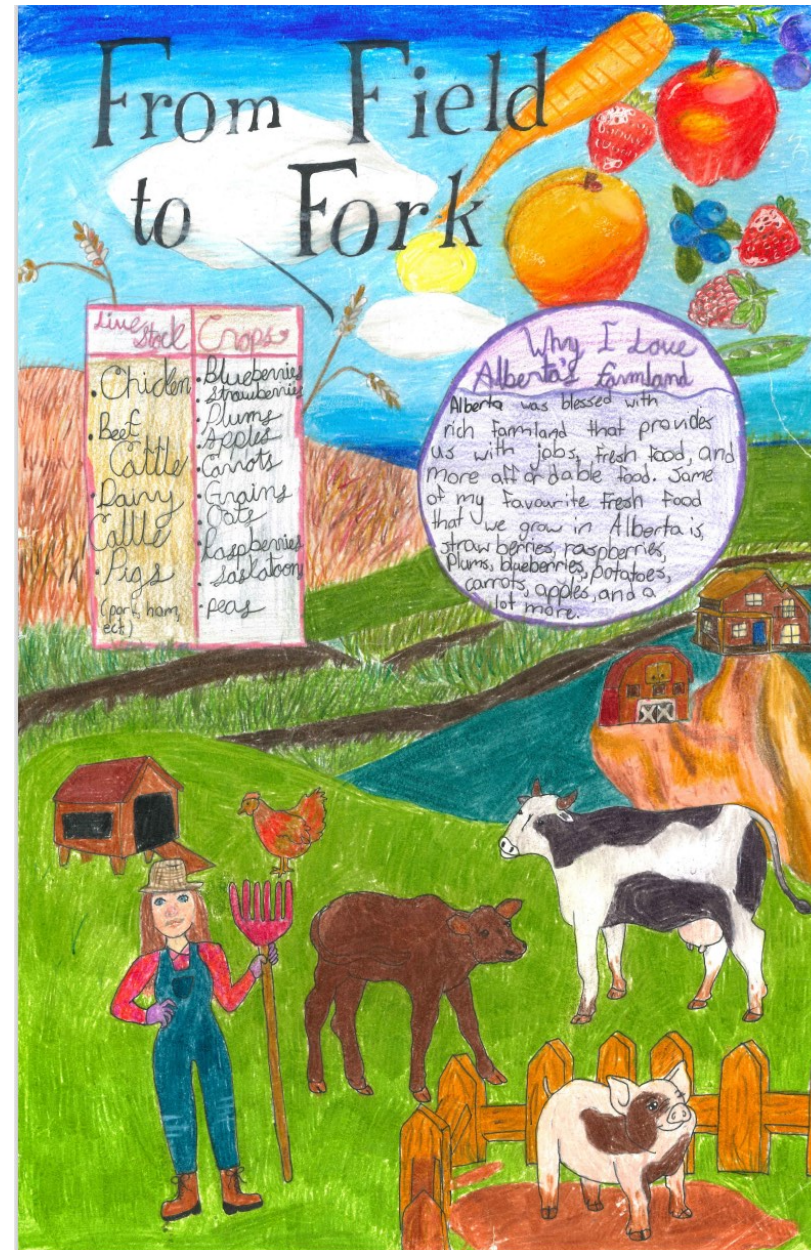 From Field
to Fork
Live
Stock
• Chicken
• Beef
Cattle
• Dairy
Cattle
• Pigs
(pork, ham,
ect.)
Crops
• Blueberries
• Strawberries
• Plums
• Apples
• Carrots
• Grains
• Oats
• Raspberries
• Saskatoon
• peas
Why I Love
Alberta's farmland
Alberta was blessed with
rich farmland that provides
us with jobs, fresh food, and
more affordable food. Some
of my favourite fresh food
that we grow in Alberta is,
strawberries, raspberries,
Plums, blueberries, potatoes,
carrots, apples, and a
lot more.